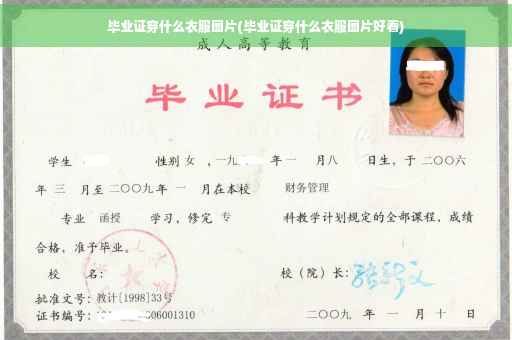 毕业证穿什么衣服图片(毕业证穿什么衣服图片好看)
成人高等教育
毕业证书
学生 性别 女 ，一九 年一 月八 日生，于二〇〇六
年 三 月至二〇〇九年 一 月在本校 财务管理
专业 函授 学习，修完 专 科教学计划规定的全部课程，成绩
合格，准予毕业。
校 名： 校（院）长：
批准文号：教计[1998]33号
证书编号： 06001310 二〇〇九 年 一 月 十 日